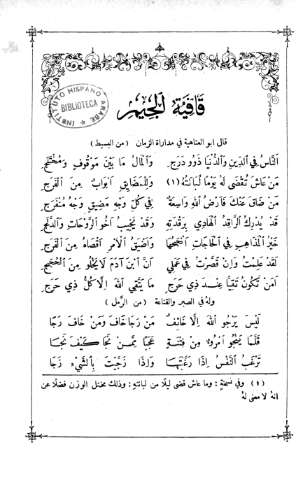 قافية الجيم
INSTITUTO HISPANO ARABE
BIBLIOTECA
قال ابو العتاهية في مداراة الزمان (من البسيط)
النَّاسُ فِي الدِّينِ وَالدُّنْيَا ذَوُو دَرَجٍ وَالْمَالُ مَا بَيْنَ مَوْقُوفٍ وَمُخْتَلَجِ
مَنْ عَاشَ تُقْضَى لَهُ يَوْمًا لُبَانَتُهُ (١) وَلِلْمَضَايِقِ أَبْوَابٌ مِنَ الْفَرَجِ
مَنْ ضَاقَ عَنْكَ فَأَرْضُ اللهِ وَاسِعَةٌ فِي كُلِّ وَجْهِ مَضِيقٍ وَجْهُ مُنْفَرَجِ
قَدْ يُدْرِكُ الرَّاقِدُ الْهَادِي بِرَقْدَتِهِ وَقَدْ يَخِيبُ أَخُو الرَّوْحَاتِ وَالدَّلَجِ
خَيْرُ الْمَذَاهِبِ فِي الْحَاجَاتِ أَنْجَحُهَا وَأَضْيَقُ الْأَمْرِ أَقْصَاهُ مِنَ الْفَرَجِ
لَقَدْ عَلِمْتُ وَإِنْ قَصَّرْتُ فِي عَمَلِي أَنَّ ابْنَ آدَمَ لَا يَخْلُو مِنَ الْحُجَجِ
أَمَنْ تَكُونُ تَقِيًّا عِنْدَ ذِي حَرَجٍ مَا يَتَّقِي اللهَ إِلَّا كُلُّ ذِي حَرَجِ
وله في الصبر والقناعة (من الرمل)
لَيْسَ يَرْجُو اللهَ إِلَّا خَائِفٌ مَنْ رَجَا خَافَ وَمَنْ خَافَ رَجَا
قَلَّمَا يَنْجُو امْرُؤٌ مِنْ فِتْنَةٍ عَجَبًا مِمَّنْ نَجَا كَيْفَ نَجَا
تَرْغَبُ النَّفْسُ إِذَا رَغَّبْتَهَا وَإِذَا زَجَّيْتَ بِالشَّيْءِ زَجَا
(١) وفي نسخة: وما عاش قضى ليلًا من لبانته: وذلك مختل الوزن فضلًا عن
انهُ لا معنى لهُ